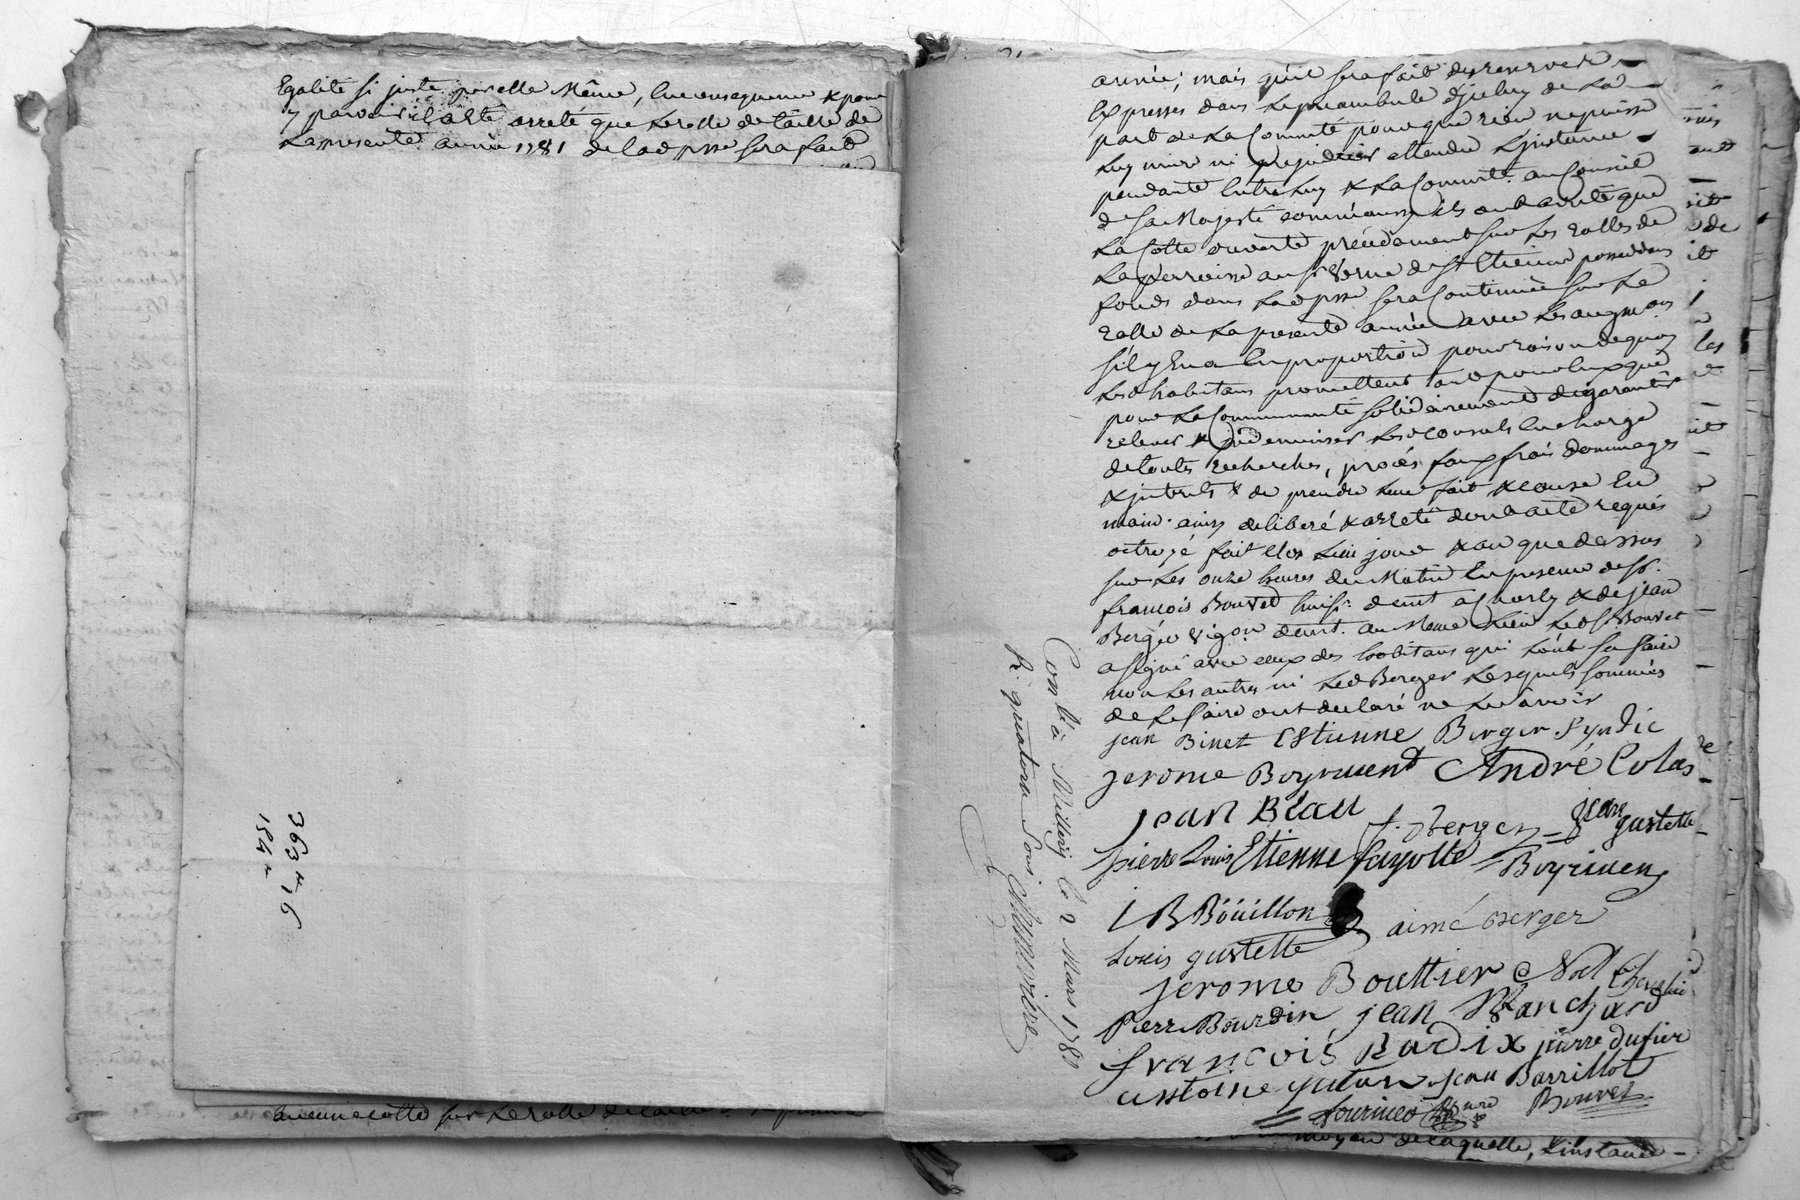 Egalité si juste par elle Même, En consequence & pour
y parvenir ils ont arreté que Le rolle de taille de
La presente année 1781 de lad. psse sera fait
363 ₶, 6
aucune cotte sur Le rolle de
année; mais qu'il sera fait des reserves
Expresses dans Le preambule d'iceluy de La
part de La Commté pour que rien ne puisse
Luy nuire ni prejudicier attendu L'instance
pendante Entre Luy & La Commté au Conseil
de Sa Majesté comme aussy ils ont arreté que
La Cotte ouverte précédament sur Les rolles de
La parroisse au Sr Verne de St Etienne possedant
fonds dans Lad. psse sera Continuée sur Le
rolle de La presente année avec Les augmons
s'il y En a En proportion pour raison de quoy
Lesd. habitans promettent tant pour Eux que
pour La Communauté solidairement de garantir
relever & indemniser Lesd. consuls En charge
de toutes recherches, procés faux frais dommages
& interets & de prendre Leur fait & cause En
main. ainsy deliberé & arreté dont acte requis
octroyé fait Les Lieu jour & an que dessus
sur Les onze heures du Matin En presence de Sr.
françois Bouvet huissr. demt a Charly & de jean
Berger vigon demt. au Meme Lieu Led. Sr Bouvet
a signé avec ceux des habitans qui L'ont su faire
non Les autres ni Led. Berger Lesquels sommés
de Le faire ont declaré ne Le savoir
jean Binet Estienne Berger Syndic
jerome Boyrivent André Colas
jean Blau
f. Berger jean gustelle
pierre Louis Etienne fayolle Boyriven
I B Boüillon
aimé Berger
Louis gustelle
jerome Bouttier Noel Chevalier
Pierre Bourdin jean Blanchard
francois Badix pierre dufier
antoine jean Barrillot
Bouvet
Conlé à Millery le 2 Mars 1781
R. quatorze sous
moyen de laquelle, L'instance